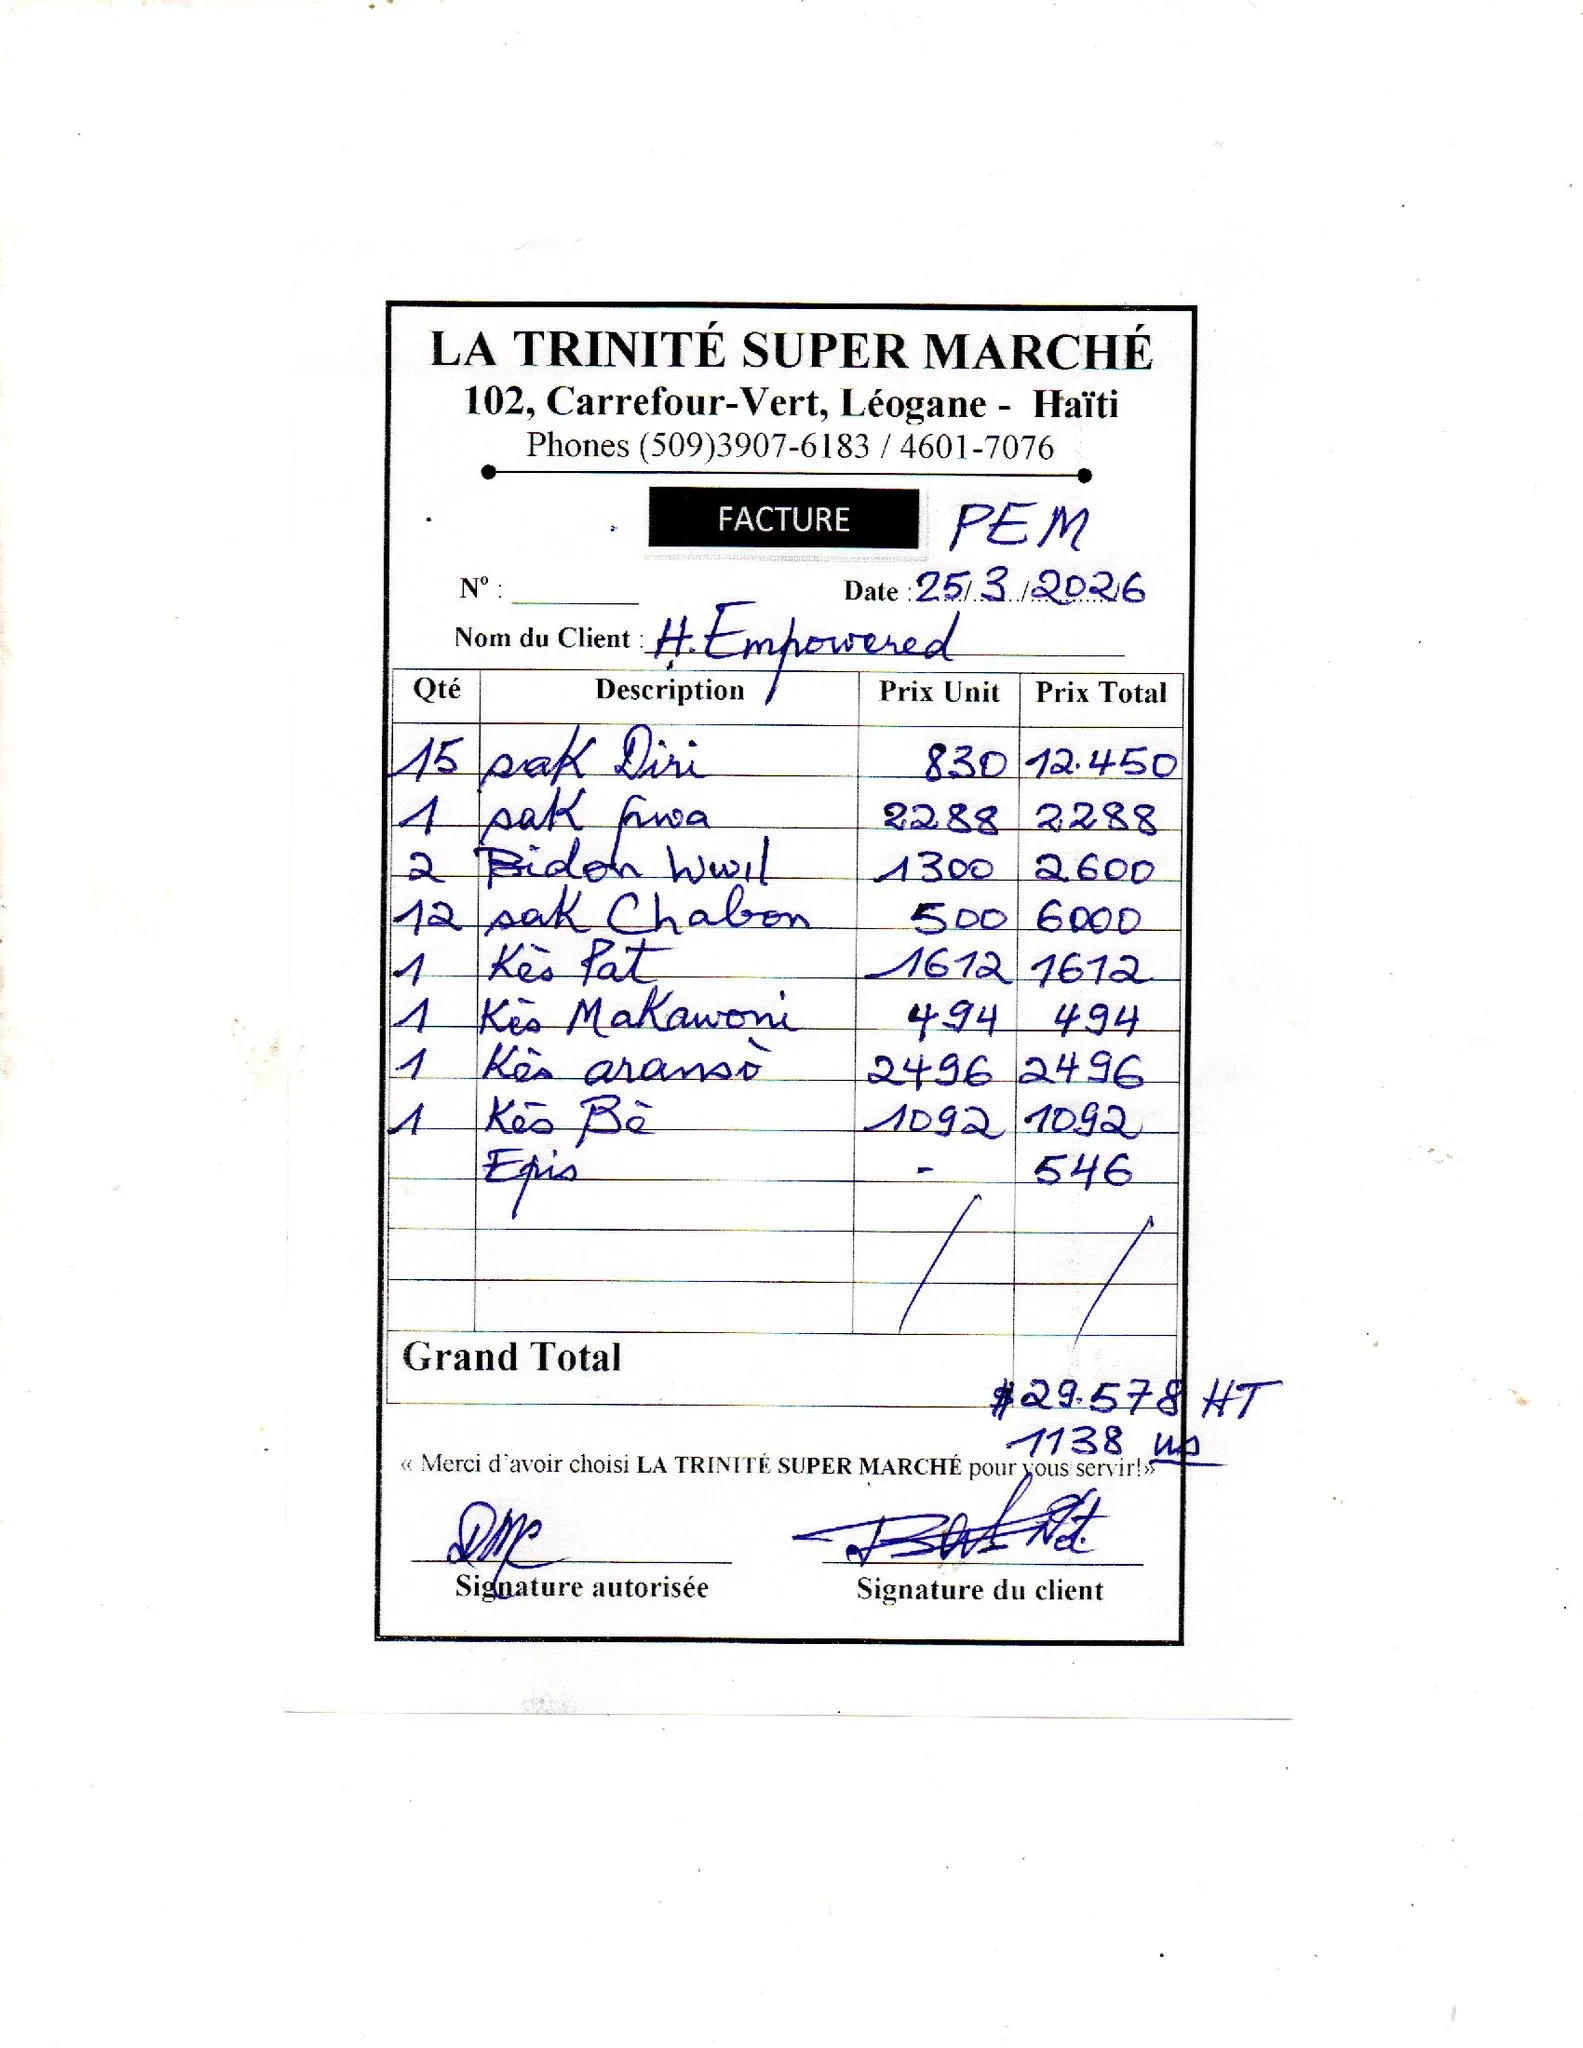 LA TRINITÉ SUPER MARCHÉ
102, Carrefour-Vert, Léogane - Haïti
Phones (509)3907-6183 / 4601-7076
FACTURE PEM
Nº : Date : 25/3/2026
Nom du Client : H. Empowered
Qté Description Prix Unit Prix Total
15 sak Diri 830 12.450
1 sak pwa 2288 2288
2 Bidon Wwil 1300 2600
12 sak Chabon 500 6000
1 Kès Pat 1612 1612
1 Kès Makawoni 494 494
1 Kès aransò 2496 2496
1 Kès Bè 1092 1092
Epis - 546
Grand Total
$29.578 HT
1138 us
« Merci d'avoir choisi LA TRINITÉ SUPER MARCHÉ pour vous servir!»
Signature autorisée Signature du client